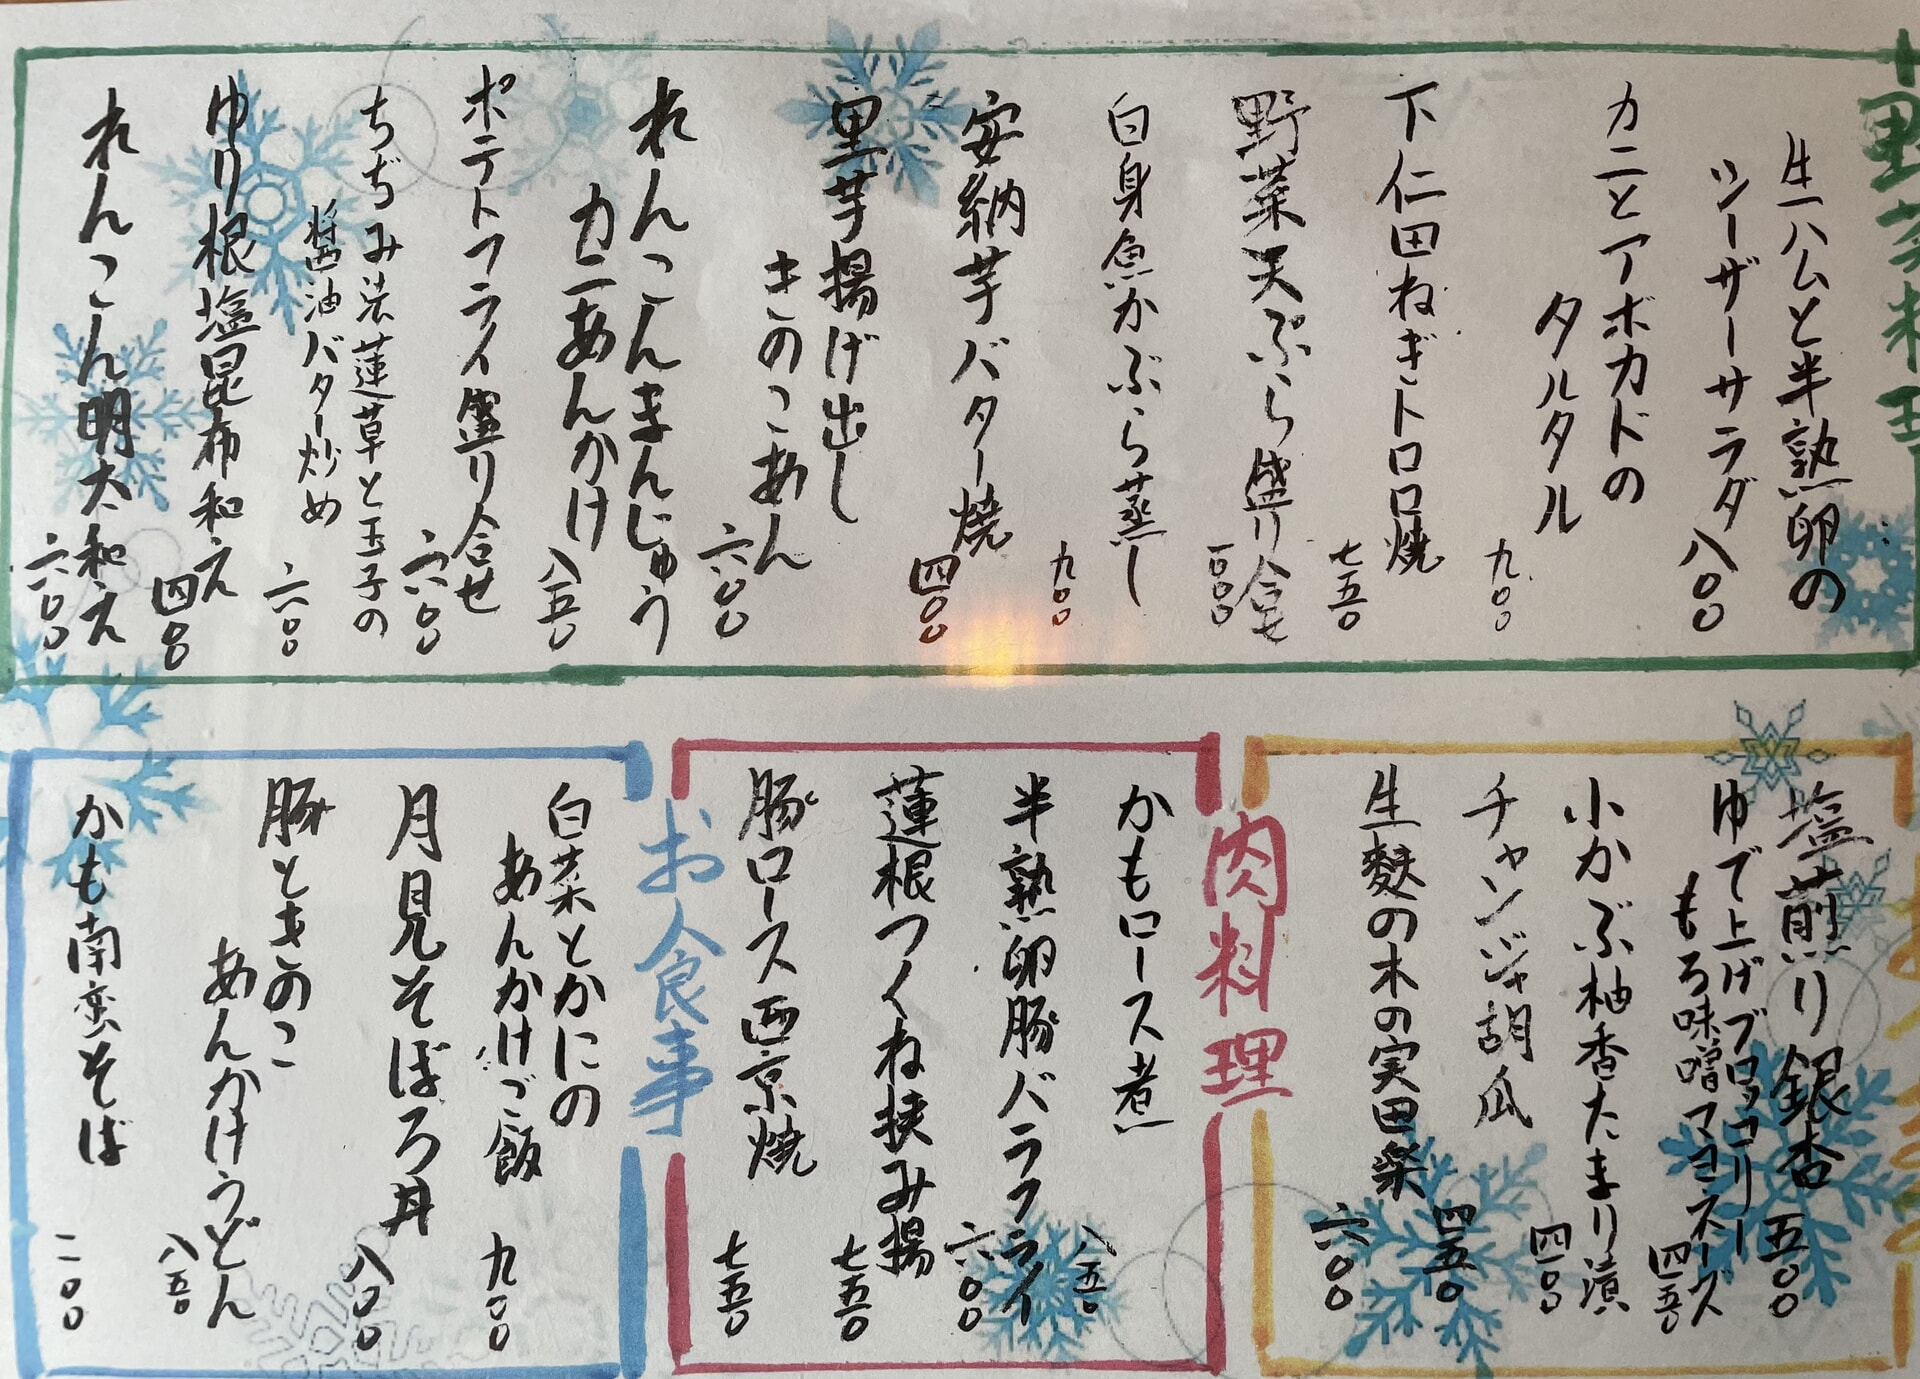 野菜料理
生ハムと半熟卵の
シーザーサラダ 八〇〇
カニとアボカドの
タルタル 九〇〇
下仁田ねぎトロロ焼 七五〇
野菜天ぷら盛り合せ 一〇〇〇
白身魚かぶら蒸し 九〇〇
安納芋バター焼 四〇〇
里芋揚げ出し
きのこあん 六〇〇
れんこんまんじゅう
カニあんかけ 八五〇
ポテトフライ盛り合せ 六〇〇
ちぢみ法蓮草と玉子の
醤油バター炒め 六〇〇
ゆり根塩昆布和え 四〇〇
れんこん明太和え 六〇〇
塩煎り銀杏 五〇〇
ゆで上げブロッコリー
もろ味噌マヨネーズ 四五〇
小かぶ柚香たまり漬 四〇〇
チャンジャ胡瓜 四五〇
生麩の木の実田楽 六〇〇
肉料理
かもロース煮 八五〇
半熟卵豚バラフライ 六〇〇
蓮根つくね挟み揚 七五〇
豚ロース西京焼 七五〇
お食事
白菜とかにの
あんかけご飯 九〇〇
月見そぼろ丼 八〇〇
豚ときのこ
あんかけうどん 八五〇
かも南蛮そば 一二〇〇